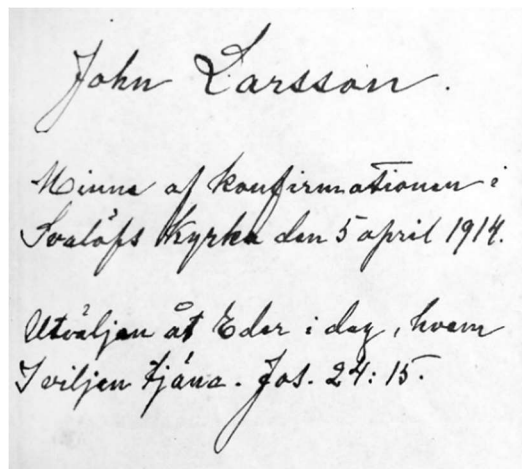 John Larsson.
Minne af konfirmationen i
Svalöfs Kyrka den 5 april 1914.
Utväljen åt Eder i dag, hvem
I viljen tjäna. Jos. 24:15.